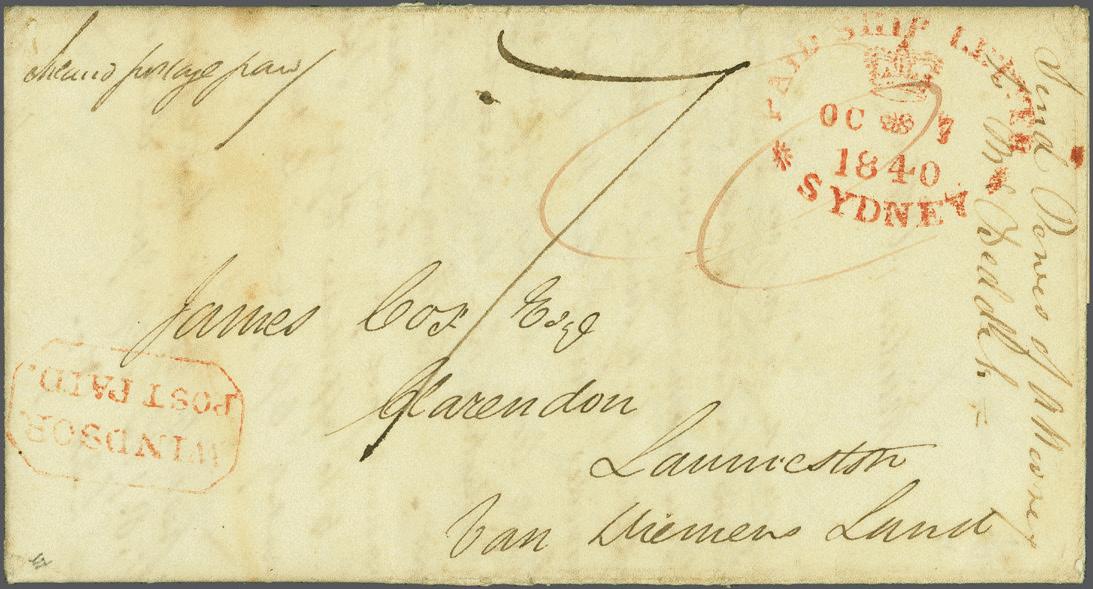 Inland postage paid
7
PAID SHIP LETTER
OC 7
1840
SYDNEY
James Cox Esqe
Clarendon
Launceston
Van Diemens Land
WINDSOR
POST PAID.
Send of
Mr